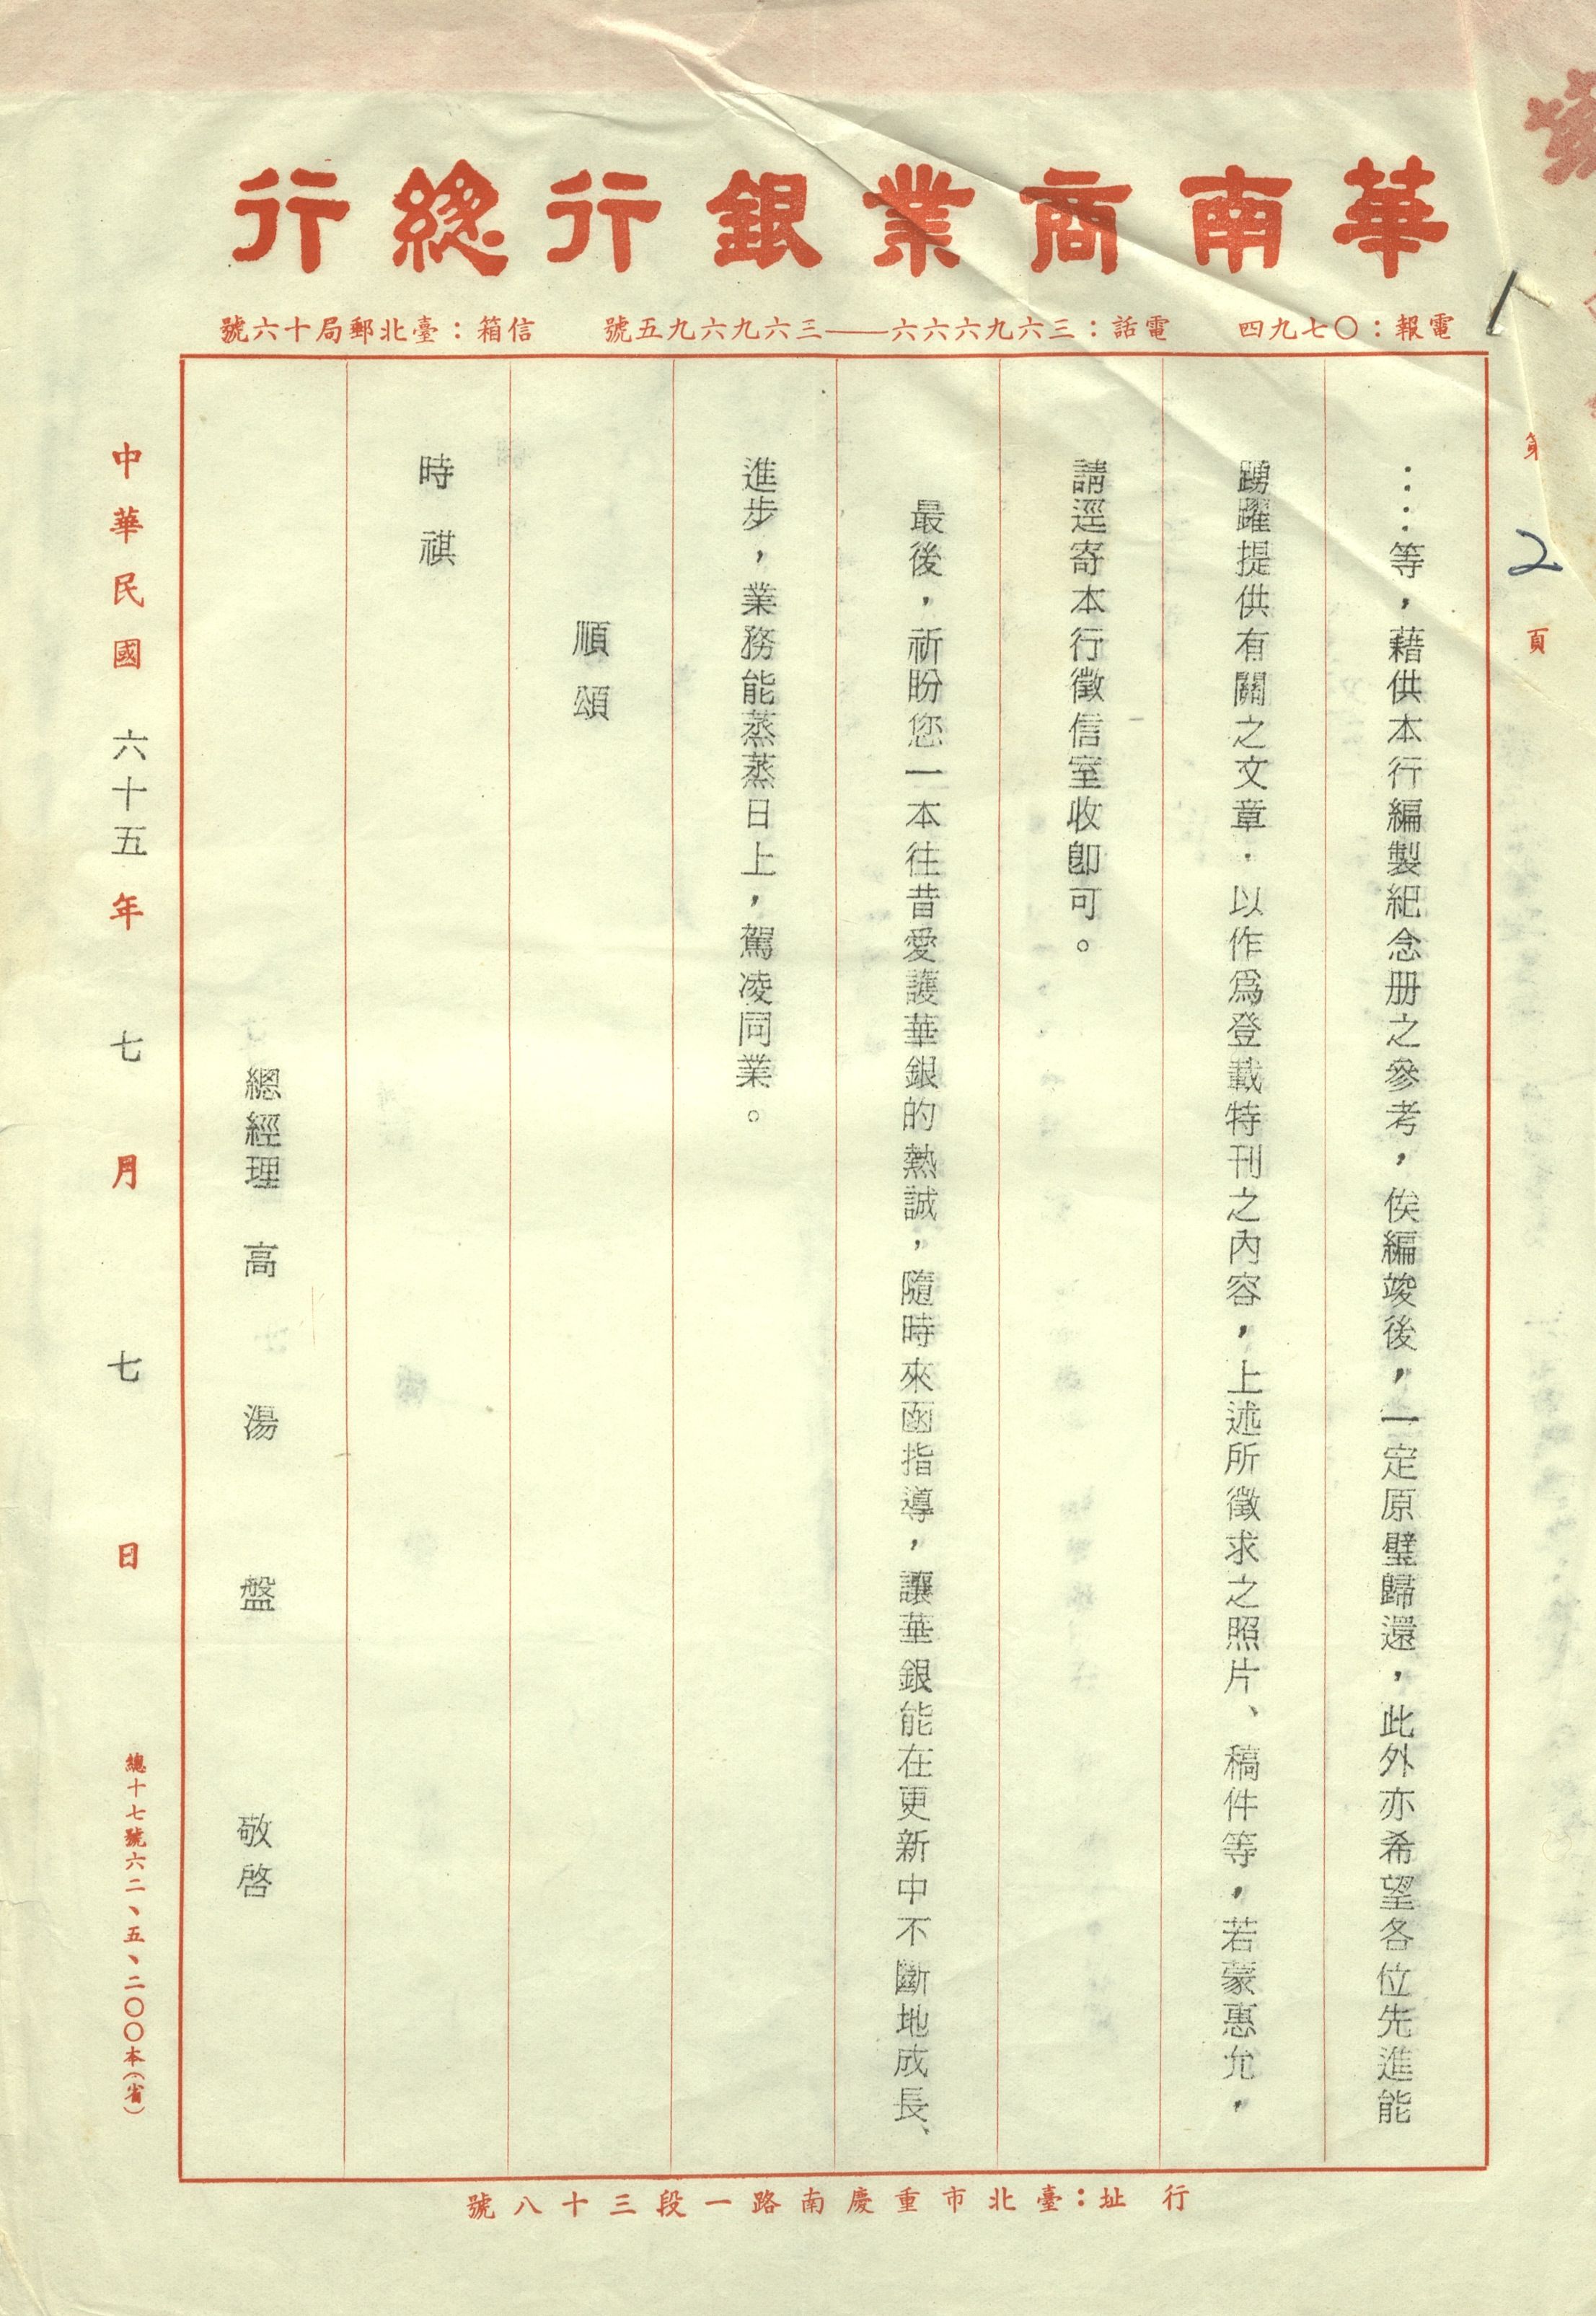 華南商業銀行總行
電報：〇七九四　電話：三六九六六六——三六九六九五號　信箱：臺北郵局十六號
第2頁
：：等，藉供本行編製紀念册之參考，俟編竣後，一定原璧歸還，此外亦希望各位先進能
踴躍提供有關之文章．以作爲登載特刊之內容，上述所徵求之照片、稿件等，若蒙惠允，
請逕寄本行徵信室收卽可。
最後，祈盼您一本往昔愛護華銀的熱誠，隨時來函指導，讓華銀能在更新中不斷地成長、
進步，業務能蒸蒸日上，駕凌同業。
順頌
時祺
總經理 高 湯 盤 敬啓
中華民國 六十五年 七 月 七 日
總十七號六二、五、二〇〇本（省）
行　址：臺北市重慶南路一段三十八號